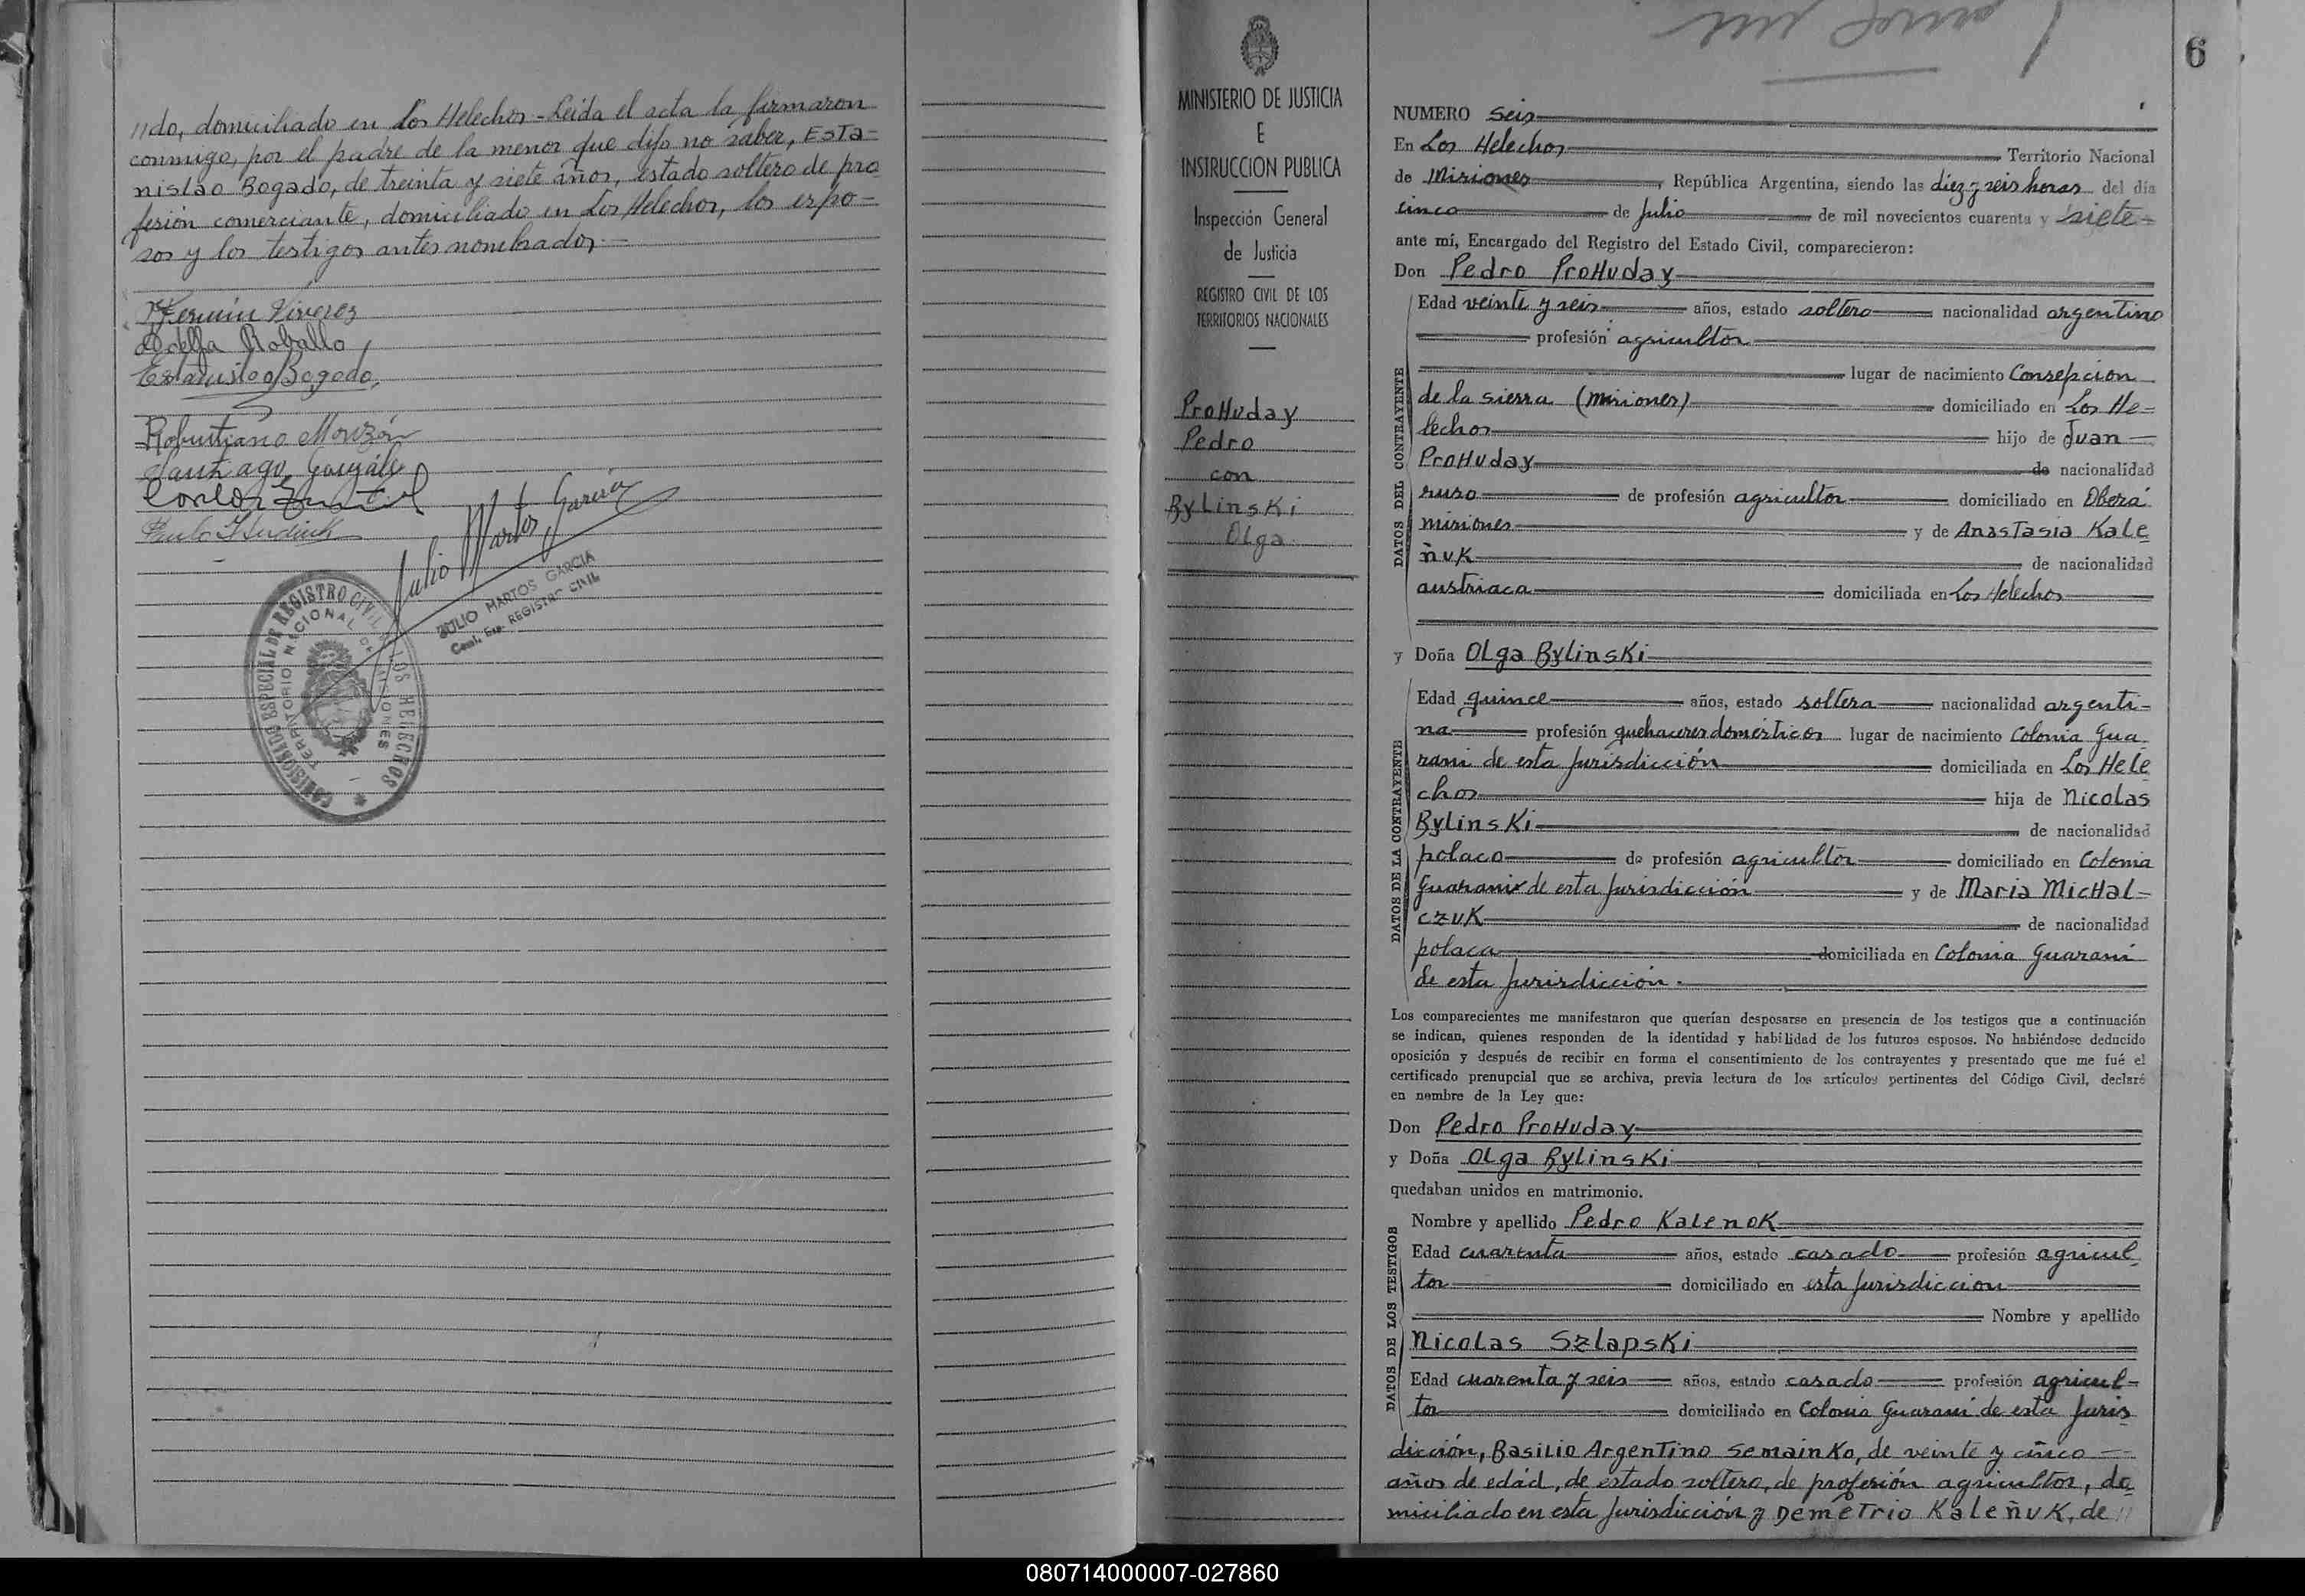 //do, domiciliado en Los Helechos - Leida el acta la firmaron
conmigo, por el padre de la menor que dijo no saber, Esta=
nislao Bogado, de treinta y siete años, estado soltero de pro
fesión comerciante, domiciliado en Los Helechos, los espo=
sos y los testigos antes nombrados.—
Fermín
Adelfa Roballo
Estanislao Bogado
Robustiano Monzón
Santiago Gonzáles
Carlos
Paulo
Julio Martos García
JULIO MARTOS GARCIA
REGISTRO CIVIL
COMISION ESPECIAL DE REGISTRO CIVIL LOS HELECHOS
TERRITORIO NACIONAL DE MISIONES
MINISTERIO DE JUSTICIA
E
INSTRUCCION PUBLICA
Inspección General
de Justicia
REGISTRO CIVIL DE LOS
TERRITORIOS NACIONALES
ProHuday
Pedro
con
BylinsKi
Olga
6
NUMERO seis
En Los Helechos Territorio Nacional
de Misiones, República Argentina, siendo las diez y seis horas del día
cinco de Julio de mil novecientos cuarenta y siete=
ante mí, Encargado del Registro del Estado Civil, comparecieron:
Don Pedro ProHuday
DATOS DEL CONTRAYENTE
Edad veinte y seis años, estado soltero nacionalidad argentino
profesión agricultor
lugar de nacimiento Consepcion
de la sierra (misiones) domiciliado en Los He=
lechos hijo de Juan
ProHuday de nacionalidad
ruso de profesión agricultor domiciliado en Oberá
misiones y de Anastasia Kale
ñuK de nacionalidad
austriaca domiciliada en Los Helechos
y Doña Olga BylinsKi
DATOS DE LA CONTRAYENTE
Edad quince años, estado soltera nacionalidad argenti=
na profesión quehaceres domésticos lugar de nacimiento Colonia Gua
rani de esta Jurisdicción domiciliada en Los Hele
chos hija de Nicolas
BylinsKi de nacionalidad
polaco de profesión agricultor domiciliado en Colonia
Guarani de esta Jurisdicción y de Maria MicHal=
czuK de nacionalidad
polaca domiciliada en Colonia Guarani
de esta Jurisdicción.
Los comparecientes me manifestaron que querían desposarse en presencia de los testigos que a continuación
se indican, quienes responden de la identidad y habilidad de los futuros esposos. No habiéndose deducido
oposición y después de recibir en forma el consentimiento de los contrayentes y presentado que me fué el
certificado prenupcial que se archiva, previa lectura de los artículos pertinentes del Código Civil, declaré
en nombre de la Ley que:
Don Pedro ProHuday
y Doña Olga BylinsKi
quedaban unidos en matrimonio.
DATOS DE LOS TESTIGOS
Nombre y apellido Pedro KalenoK
Edad cuarenta años, estado casado profesión agricul
tor domiciliado en esta Jurisdiccion
Nombre y apellido
Nicolas SzlapsKi
Edad cuarenta y seis años, estado casado profesión agricul=
tor domiciliado en Colonia Guarani de esta Juris
dicción, Basilio Argentino SemainKo, de veinte y cinco
años de edad, de estado soltero, de profesión agricultor, do
miciliado en esta Jurisdicción y Demétrio KaleñuK, de //
080714000007-027860